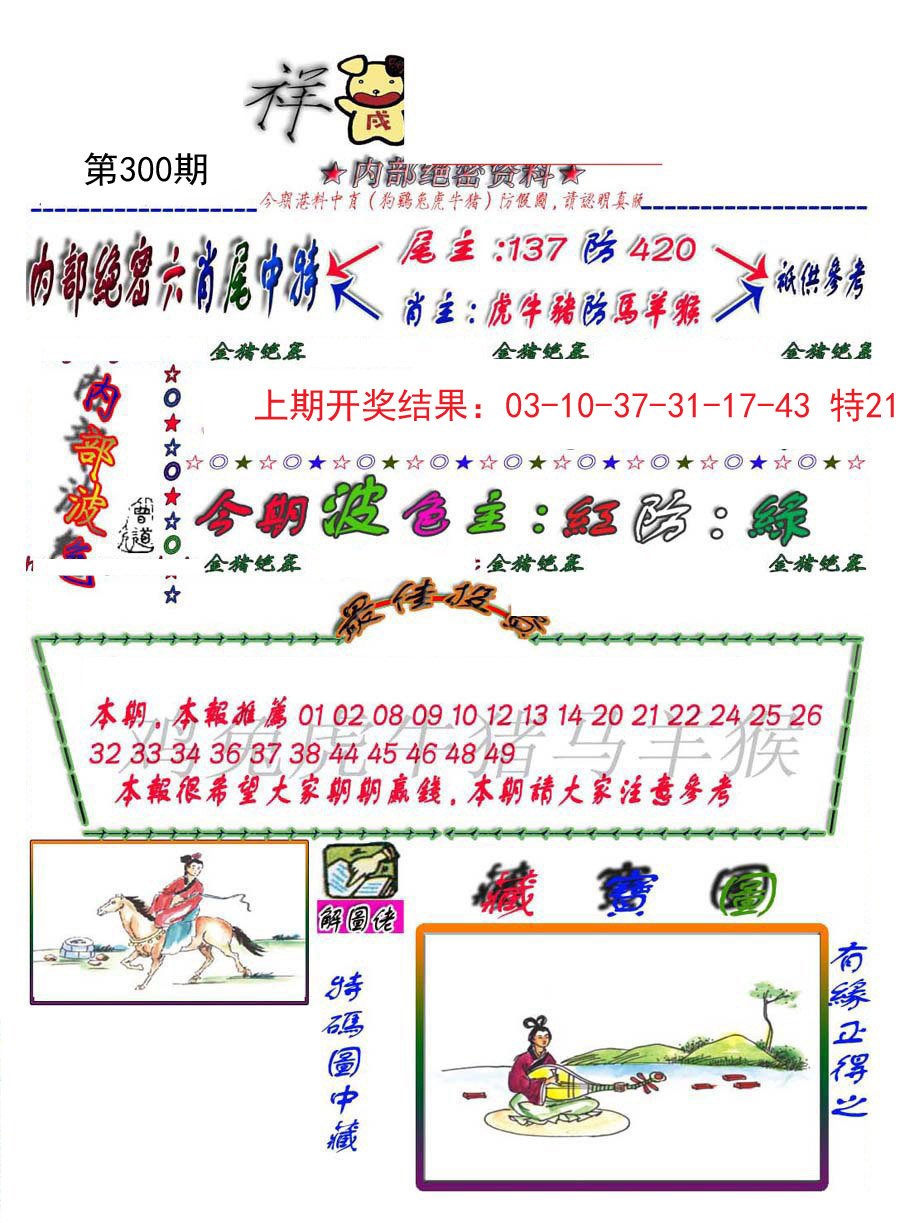 祥
戌
第300期
★内部绝密资料★
今期港料中肖(狗鷄兔虎牛猪)防假圖,請認明真版
内部絶密六肖尾中特
尾主:137防420
肖主:虎牛豬防馬羊猴
祇供參考
金猪绝密 金猪绝密 金猪绝密
内部波色
曾道
上期开奖结果:03-10-37-31-17-43 特21
☆◎★☆◎★☆◎★☆◎★☆◎★☆◎★☆◎★☆◎★☆◎☆
今期波色主:紅防:綠
金猪绝密 金猪绝密 金猪绝密
最佳投
本期.本報推薦 01 02 08 09 10 12 13 14 20 21 22 24 25 26
32 33 34 36 37 38 44 45 46 48 49
鸡兔虎牛猪马羊猴
本報很希望大家期期贏錢.本期請大家注意參考
解圖佬
特碼圖中藏
藏寶圖
有緣正得之